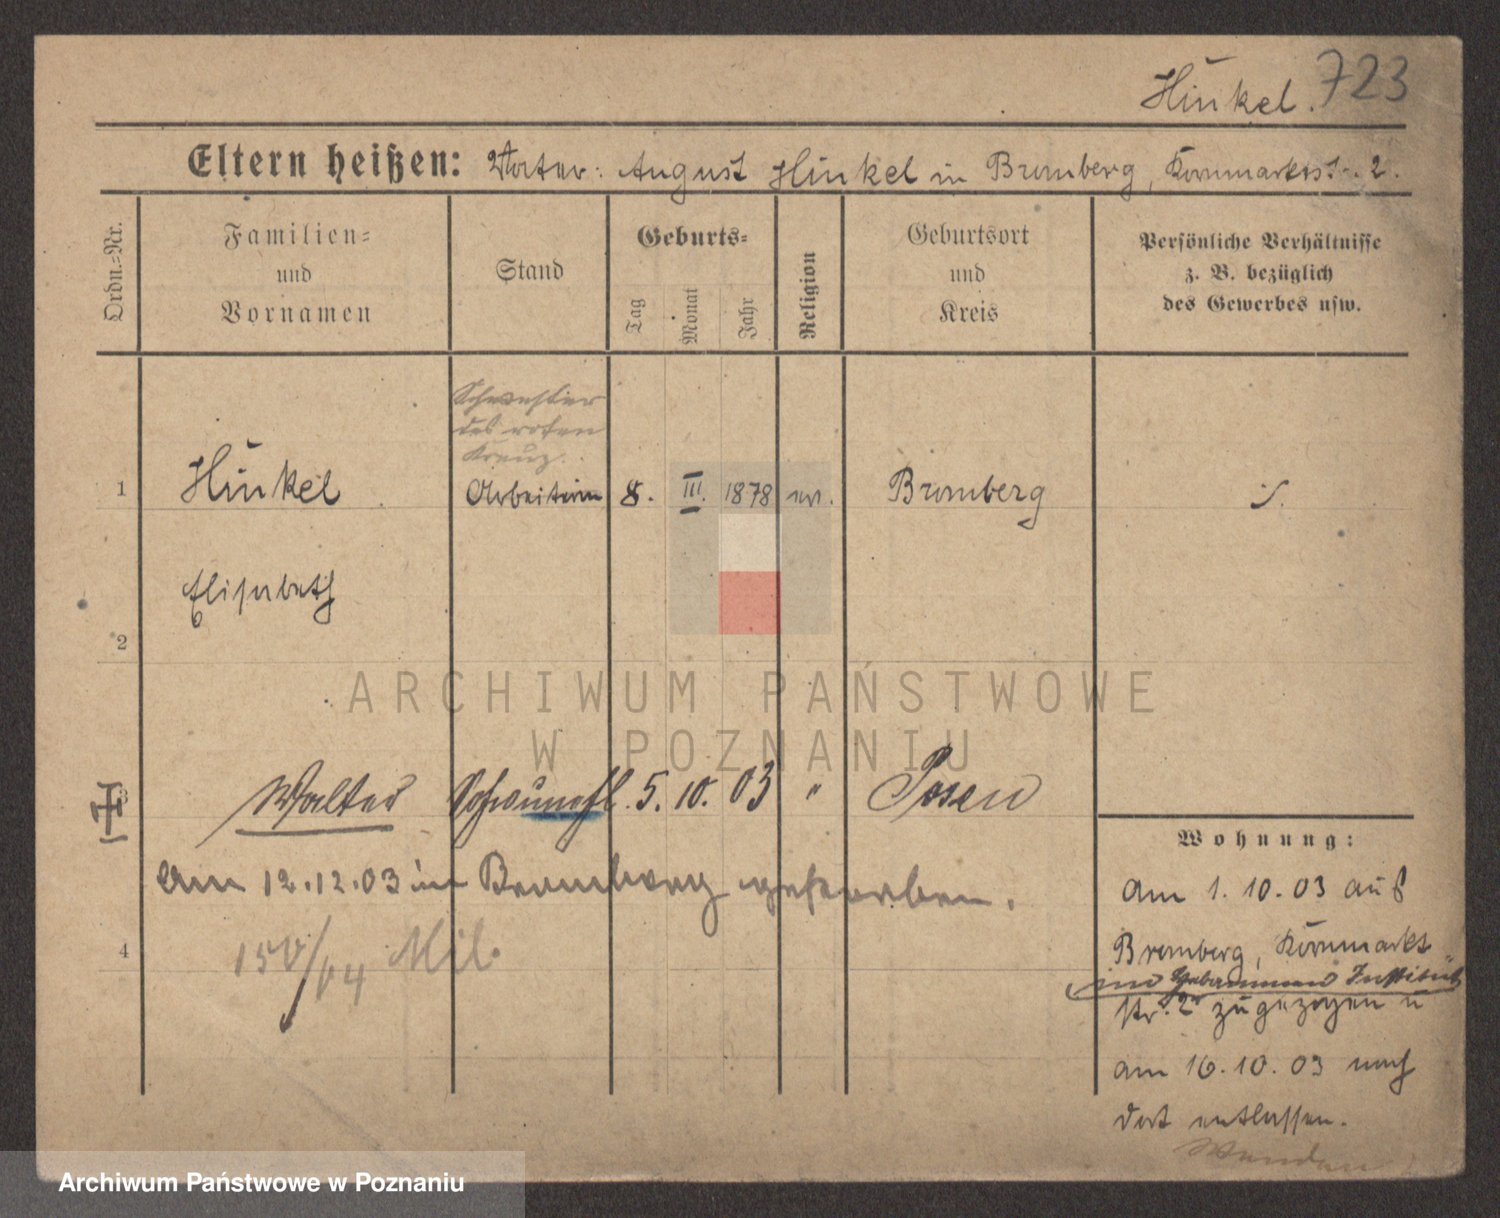 Hinkel. 723
Eltern heißen: Vater: August Hinkel in Bromberg, Kornmarktstr. 2.
Ordn.-Nr.
Familien-
und
Vornamen
Stand
Geburts-
Tag
Monat
Jahr
Religion
Geburtsort
und
Kreis
Persönliche Verhältnisse
z. B. bezüglich
des Gewerbes usw.
Schwester
des roten
Kreuz.
1 Hinkel Arbeiterin 8. III. 1878 ev. Bromberg
Elisabeth
2
ARCHIWUM PAŃSTWOWE
W POZNANIU
3 Walter 5. 10. 03 " Posen
am 12.12.03 in Bromberg gestorben.
4
150/04 Mil.
Wohnung:
Am 1. 10. 03 aus
Bromberg, Kornmarkt
im Hebammen Institut
str. 2 zugezogen u
am 16. 10. 03 nach
dort entlassen.
Wenden
Archiwum Państwowe w Poznaniu